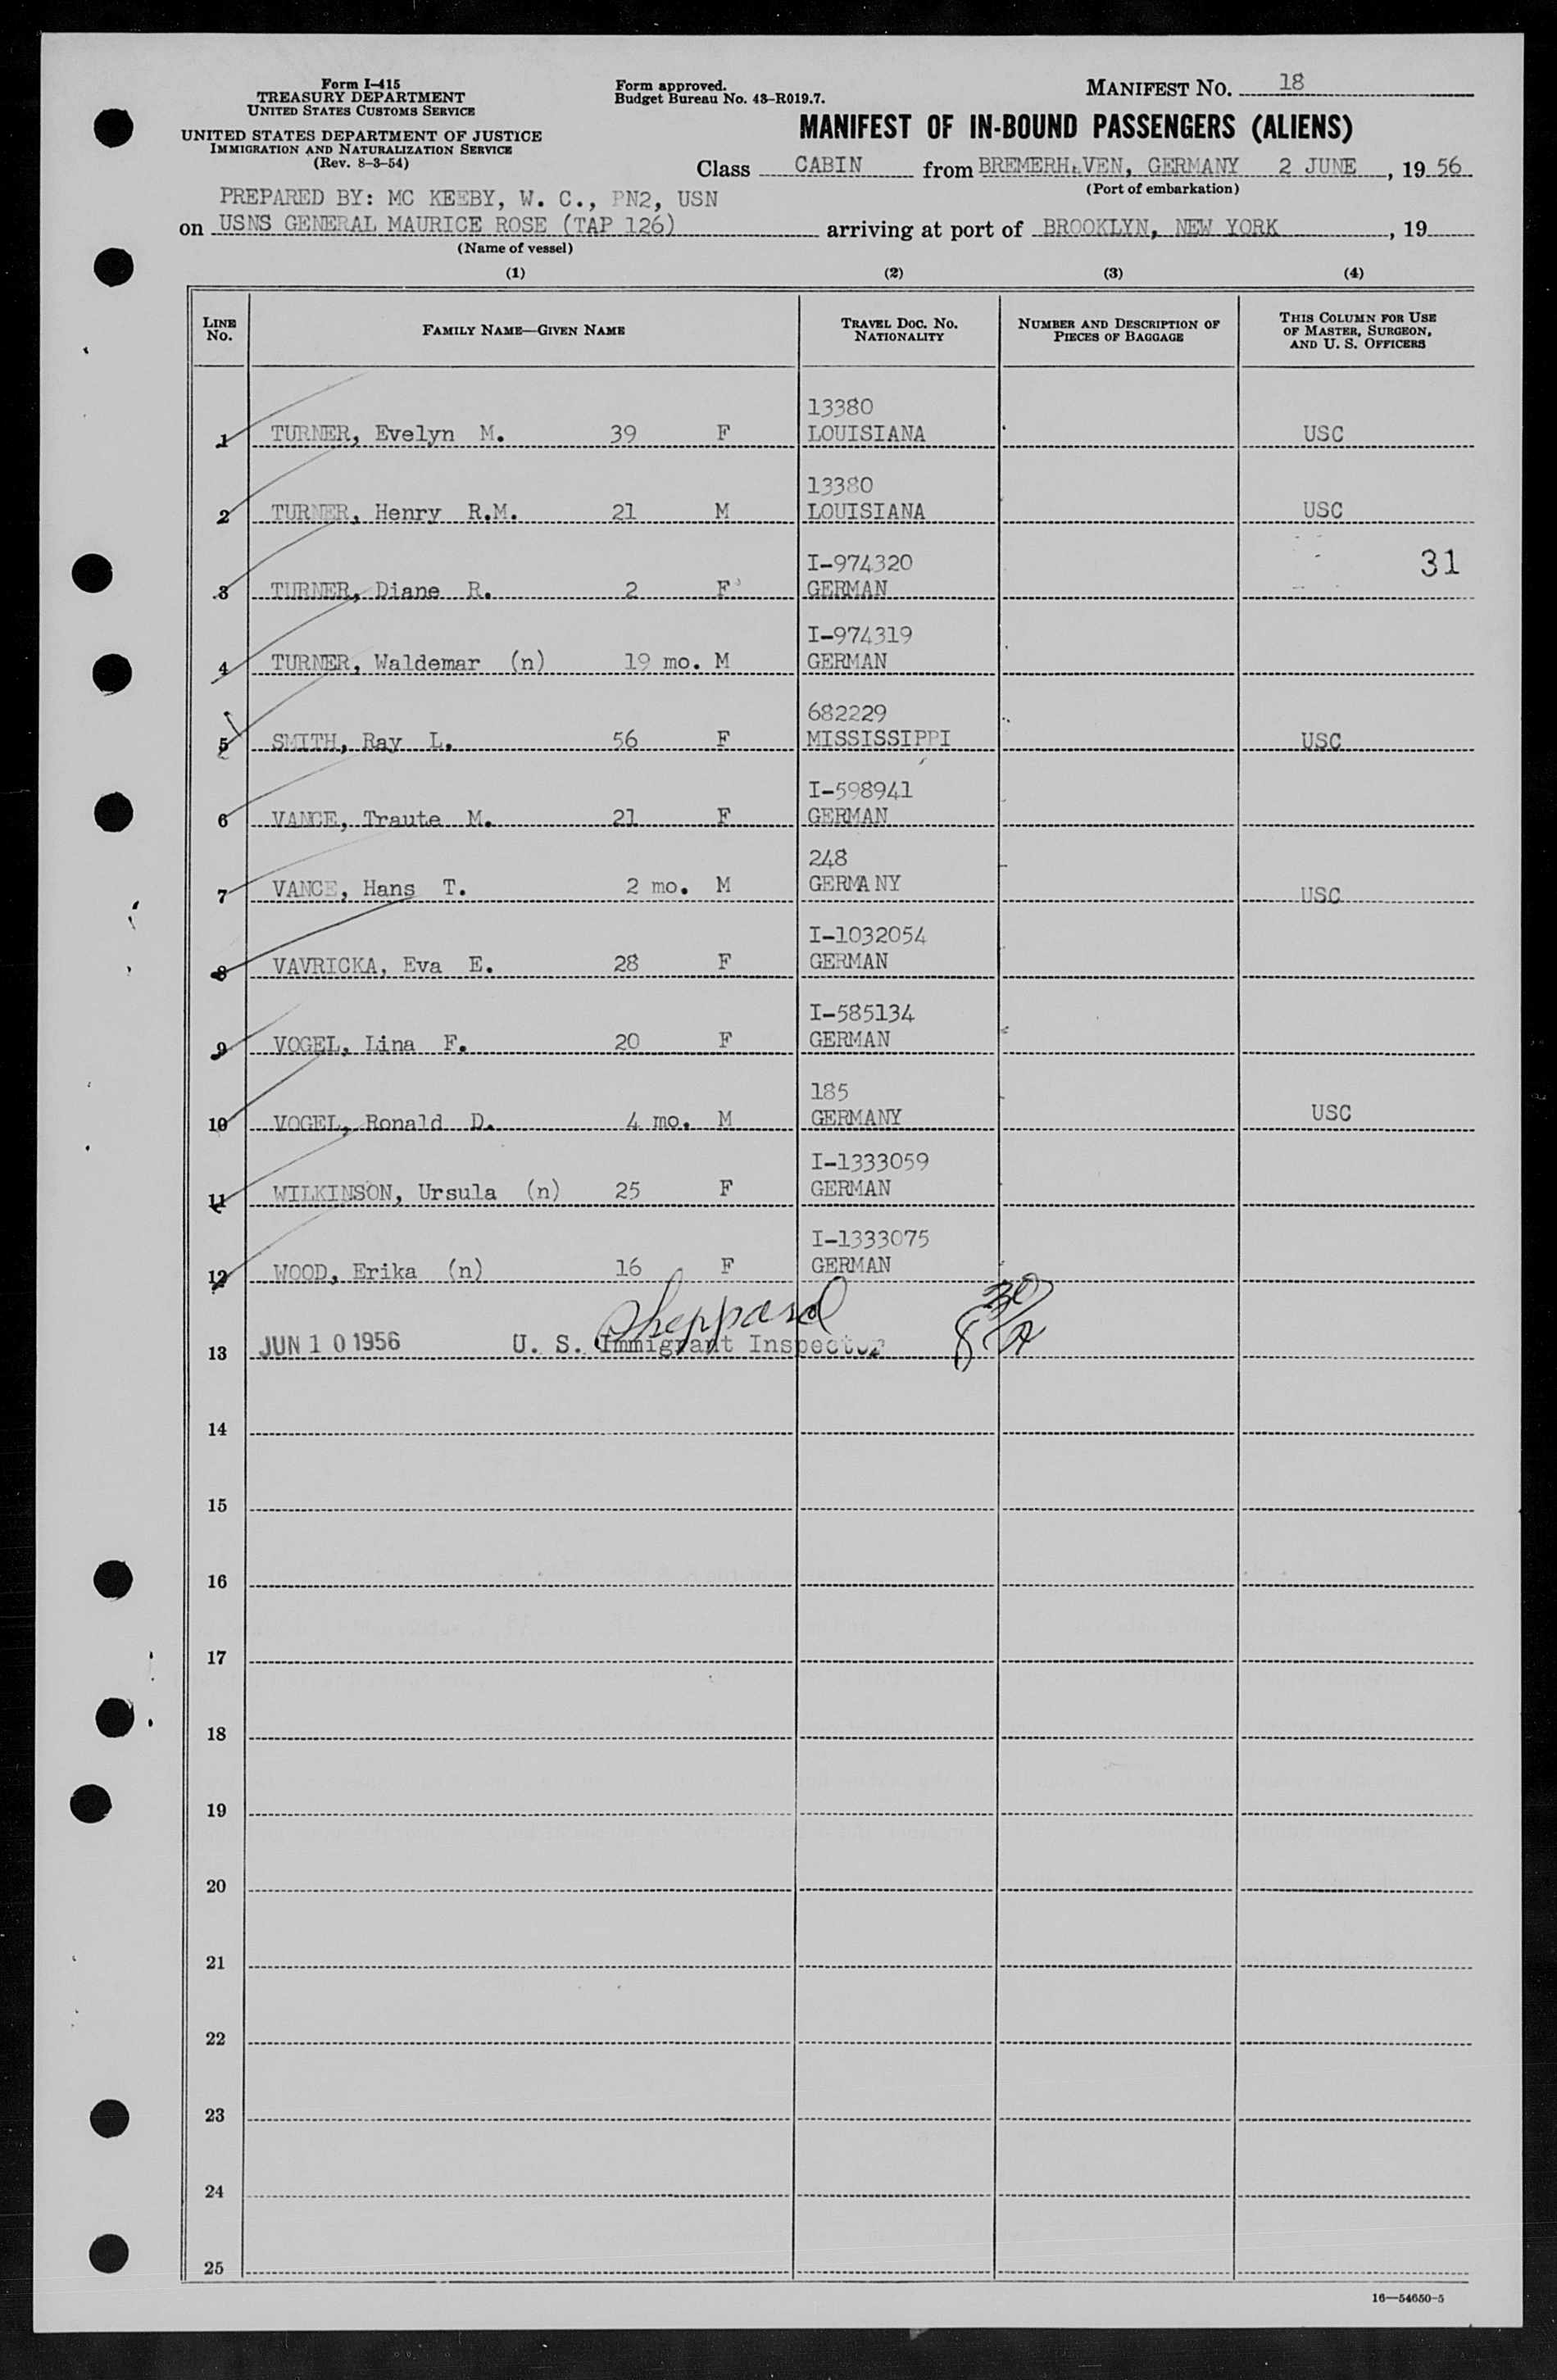 Form I-415
TREASURY DEPARTMENT
UNITED STATES CUSTOMS SERVICE
UNITED STATES DEPARTMENT OF JUSTICE
IMMIGRATION AND NATURALIZATION SERVICE
(Rev. 8-3-54)
Form approved.
Budget Bureau No. 43-R019.7.
MANIFEST NO. 18
MANIFEST OF IN-BOUND PASSENGERS (ALIENS)
Class CABIN from BREMERHAVEN, GERMANY 2 JUNE, 19 56
(Port of embarkation)
PREPARED BY: MC KEEBY, W. C., PN2, USN
on USNS GENERAL MAURICE ROSE (TAP 126) arriving at port of BROOKLYN, NEW YORK, 19
(Name of vessel)
(1) (2) (3) (4)
LINE NO. FAMILY NAME—GIVEN NAME TRAVEL DOC. NO. NATIONALITY NUMBER AND DESCRIPTION OF PIECES OF BAGGAGE THIS COLUMN FOR USE OF MASTER, SURGEON, AND U. S. OFFICERS
13380
1 TURNER, Evelyn M. 39 F LOUISIANA USC
13380
2 TURNER, Henry R.M. 21 M LOUISIANA USC
I-974320 31
3 TURNER, Diane R. 2 F GERMAN
I-974319
4 TURNER, Waldemar (n) 19 mo. M GERMAN
682229
5 SMITH, Ray L. 56 F MISSISSIPPI USC
I-598941
6 VANCE, Traute M. 21 F GERMAN
248
7 VANCE, Hans T. 2 mo. M GERMANY USC
I-1032054
8 VAVRICKA, Eva E. 28 F GERMAN
I-585134
9 VOGEL, Lina F. 20 F GERMAN
185
10 VOGEL, Ronald D. 4 mo. M GERMANY USC
I-1333059
11 WILKINSON, Ursula (n) 25 F GERMAN
I-1333075
12 WOOD, Erika (n) 16 F GERMAN
Sheppard
13 JUN 10 1956 U. S. Immigrant Inspector
14
15
16
17
18
19
20
21
22
23
24
25
16—54650-5